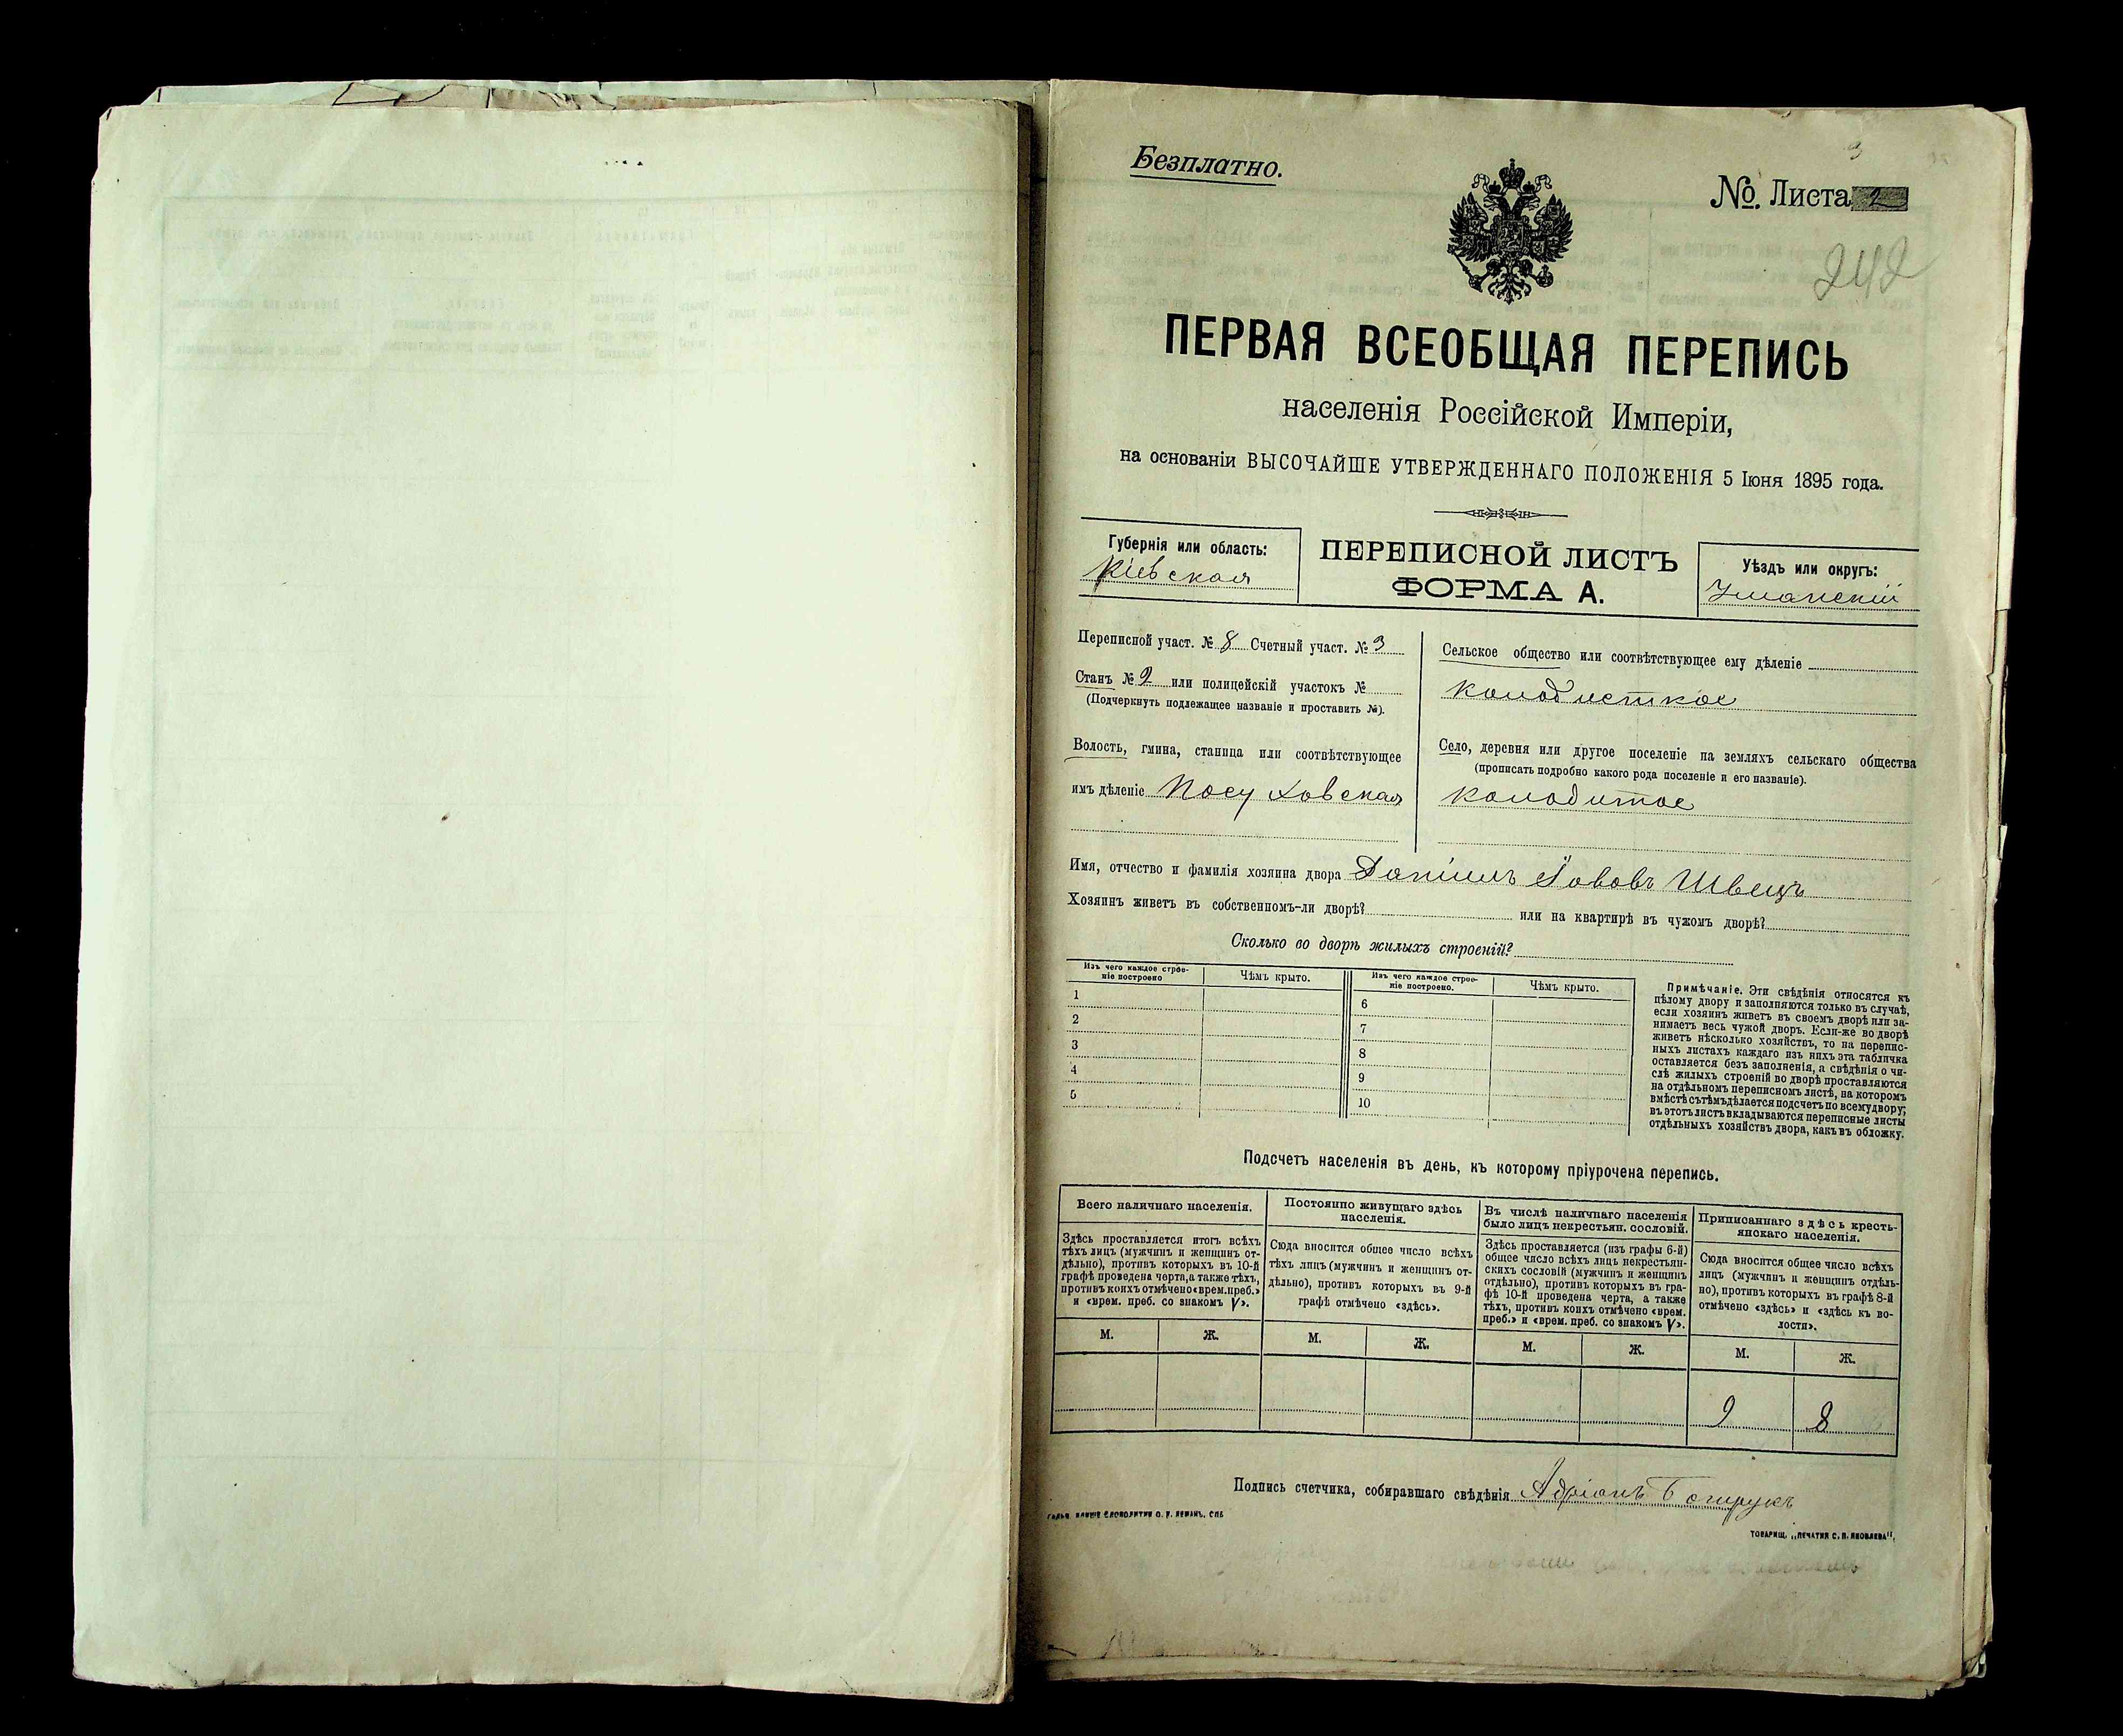 Безплатно.
№. Листа 2
242
ПЕРВАЯ ВСЕОБЩАЯ ПЕРЕПИСЬ
населенія Россійской Имперіи,
на основаніи ВЫСОЧАЙШЕ УТВЕРЖДЕННАГО ПОЛОЖЕНІЯ 5 Іюня 1895 года.
Губернія или область:
Кіевская
ПЕРЕПИСНОЙ ЛИСТЪ
ФОРМА А.
Уѣздъ или округъ:
Уманскій
Переписной участ. № 8 Счетный участ. № 3
Станъ № 2 или полицейскій участокъ №
(Подчеркнуть подлежащее названіе и проставить №).
Волость, гмина, станица или соотвѣтствующее
имъ дѣленіе Посуховская
Сельское общество или соотвѣтствующее ему дѣленіе
Колодисткое
Село, деревня или другое поселеніе на земляхъ сельскаго общества
(прописать подробно какого рода поселеніе и его названіе).
Колодистое
Имя, отчество и фамилія хозяина двора Даніилъ Іововъ Швецъ
Хозяинъ живетъ въ собственномъ-ли дворѣ? или на квартирѣ въ чужомъ дворѣ?
Сколько во дворѣ жилыхъ строеній?
Изъ чего каждое строе-
ніе построено
Чѣмъ крыто.
1
2
3
4
5
Изъ чего каждое строе-
ніе построено.
Чѣмъ крыто.
6
7
8
9
10
Примѣчаніе. Эти свѣдѣнія относятся къ
цѣлому двору и заполняются только въ случаѣ,
если хозяинъ живетъ въ своемъ дворѣ или за-
нимаетъ весь чужой дворъ. Если-же во дворѣ
живетъ нѣсколько хозяйствъ, то на перепис-
ныхъ листахъ каждаго изъ нихъ эта табличка
оставляется безъ заполненія, а свѣдѣнія о чи-
слѣ жилыхъ строеній во дворѣ проставляются
на отдѣльномъ переписномъ листѣ, на которомъ
вмѣстѣ съ тѣмъ дѣлается подсчетъ по всему двору;
въ этотъ листъ вкладываются переписные листы
отдѣльныхъ хозяйствъ двора, какъ въ обложку.
Подсчетъ населенія въ день, къ которому пріурочена перепись.
Всего наличнаго населенія.
Здѣсь проставляется итогъ всѣхъ
тѣхъ лицъ (мужчинъ и женщинъ от-
дѣльно), противъ которыхъ въ 10-й
графѣ проведена черта, а также тѣхъ,
противъ коихъ отмѣчено «врем. преб.»
и «врем. преб. со знакомъ V».
М. Ж.
Постоянно живущаго здѣсь
населенія.
Сюда вносится общее число всѣхъ
тѣхъ лицъ (мужчинъ и женщинъ от-
дѣльно), противъ которыхъ въ 9-й
графѣ отмѣчено «здѣсь».
М. Ж.
Въ числѣ наличнаго населенія
было лицъ некрестьян. сословій.
Здѣсь проставляется (изъ графы 6-й)
общее число всѣхъ лицъ некрестьян-
скихъ сословій (мужчинъ и женщинъ
отдѣльно), противъ которыхъ въ гра-
фѣ 10-й проведена черта, а также
тѣхъ, противъ коихъ отмѣчено «врем.
преб.» и «врем. преб. со знакомъ V».
М. Ж.
Приписаннаго здѣсь кресть-
янскаго населенія.
Сюда вносится общее число всѣхъ
лицъ (мужчинъ и женщинъ отдѣль-
но), противъ которыхъ въ графѣ 8-й
отмѣчено «здѣсь» и «здѣсь къ во-
лости».
М. Ж.
9 8
Подпись счетчика, собиравшаго свѣдѣнія Адріанъ
СЛОВОЛИТНИ О. И. ЛЕМАНЪ, СПБ
ТОВАРИЩ. „ПЕЧАТНЯ С. П. ЯКОВЛЕВА“.